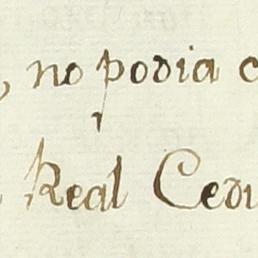 , no podia
Real Cedu